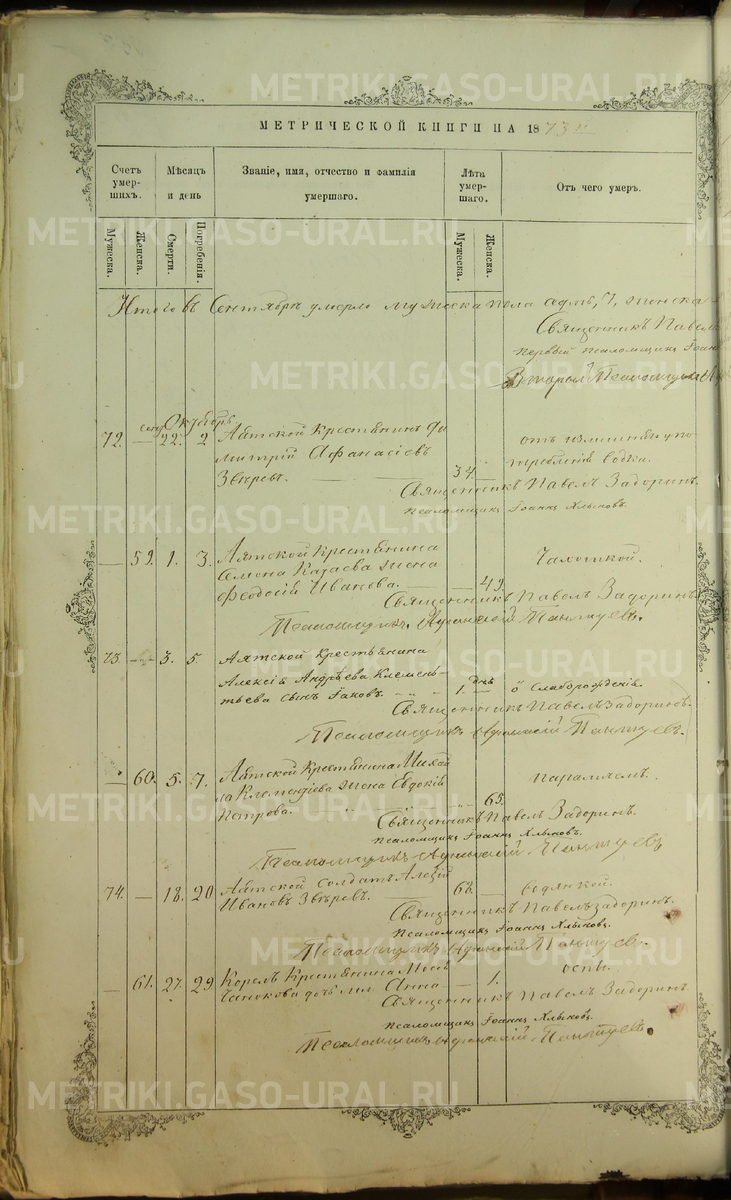 МЕТРИЧЕСКОЙ КНИГИ НА 1873 г.
Счетъ умер-шихъ. Мѣсяцъ и день Званіе, имя, отчество и фамилія умершаго. Лѣта умер-шаго. Отъ чего умеръ.
Мужеска. Женска. Смерти. Погребенія. Мужеска. Женска.
Итого въ Сентябрѣ умерло мужеска пола женска
Священникъ Павелъ
первый псаломщикъ Іоан
Второй Псаломщикъ
Октябрь
72. — сент. 22. 2 Аятской Крестьянинъ Ди
митрій Афанасіевъ
Звѣревъ. 34. отъ излишняго упо
требленія водки.
Священникъ Павелъ Задоринъ.
псаломщикъ Іоаннъ Хлыновъ.
— 59. 1. 3. Аятской Крестьянина
Семена Казаева жена
Феодосія Иванова. — 49. Чахоткой.
Священникъ Павелъ Задоринъ
Псаломщикъ
73. — 3. 5. Аятской Крестьянина
Алексія Андрѣева Клемен-
тьева сынъ Іаковъ. 1. день о Слаборожденія.
Священникъ Павелъ Задоринъ.
Псаломщикъ
— 60. 5. 7. Аятской Крестьянина Михаи
ла Клементіева жена Евдокія
Петрова. 65. параличемъ.
Священникъ Павелъ Задоринъ.
псаломщикъ Іоаннъ Хлыновъ.
Псаломщикъ
74. — 18. 20 Аятской Солдатъ Алексій
Ивановъ Звѣревъ. — 68. — водянкой.
Священникъ Павелъ Задоринъ.
Псаломщикъ Іоаннъ Хлыновъ.
Псаломщикъ
— 61. 27. 29 Корелъ Крестьянина
дочь Анна — 1. оспы.
Священникъ Павелъ Задоринъ
псаломщикъ Іоаннъ Хлыновъ.
Псаломщикъ
METRIKI.GASO-URAL.RU